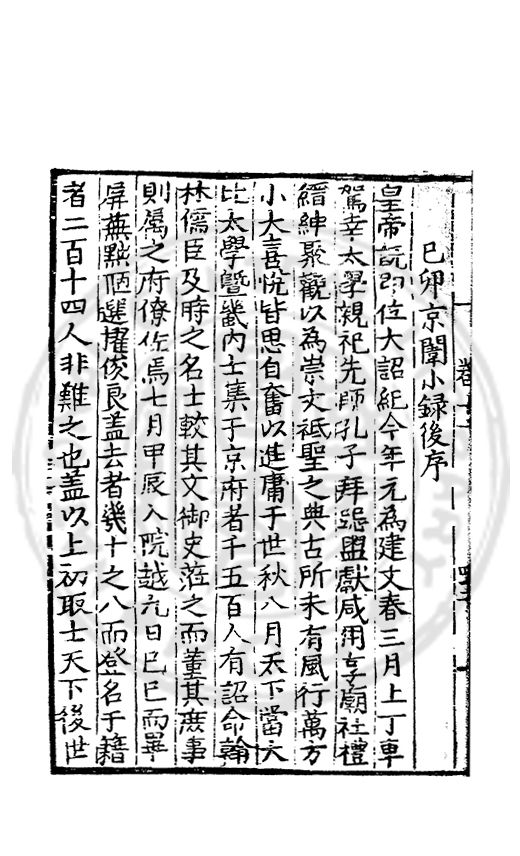 己卯京闈小録後序
皇帝既即位大詔紀今年元為建文春三月上丁車
駕幸太學親祀先師孔子拜跽盥獻咸用享廟社禮
縉紳聚觀以為崇文祗聖之典古所未有風行萬方
小大喜悅皆思自奮以進庸于世秋八月天下當大
比太學曁畿內士集于京府者千五百人有詔命翰
林儒臣及時之名士較其文御史蒞之而董其庶事
則屬之府僚佐焉七月甲辰入院越日己巳而畢
屏蕪黜陋選擢俊良蓋去者幾十之八而登名于籍
者二百十四人非難之也蓋以上初取士天下後世